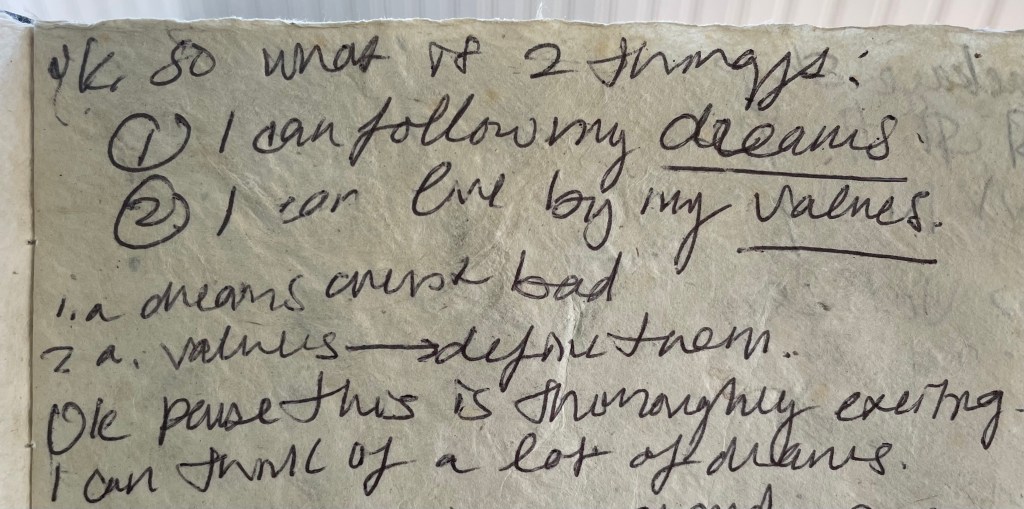 ok so what if 2 things:
① I can follow my dreams.
② I can live by my values.
1.a dreams arent bad
2 a. values → define them.
Ok pause this is thoroughly exciting.
I can think of a lot of dreams.